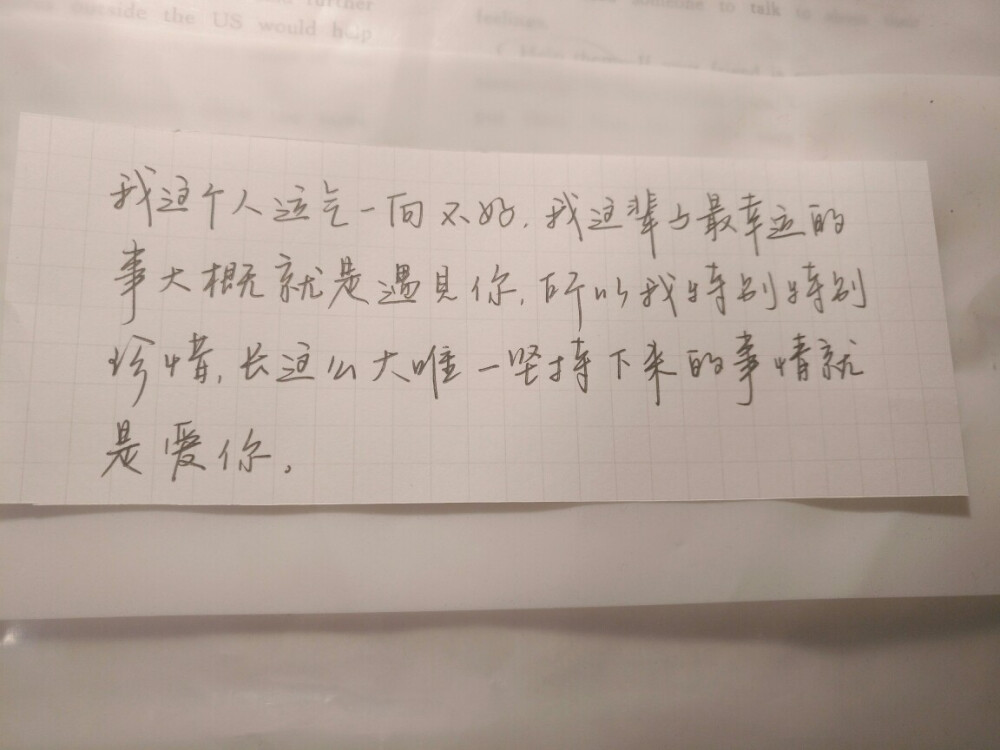 further
outside the US would help
someone to talk to about their
feelings.
我这个人运气一向不好,我这辈子最幸运的
事大概就是遇见你,所以我特别特别
珍惜,长这么大唯一坚持下来的事情就
是爱你。